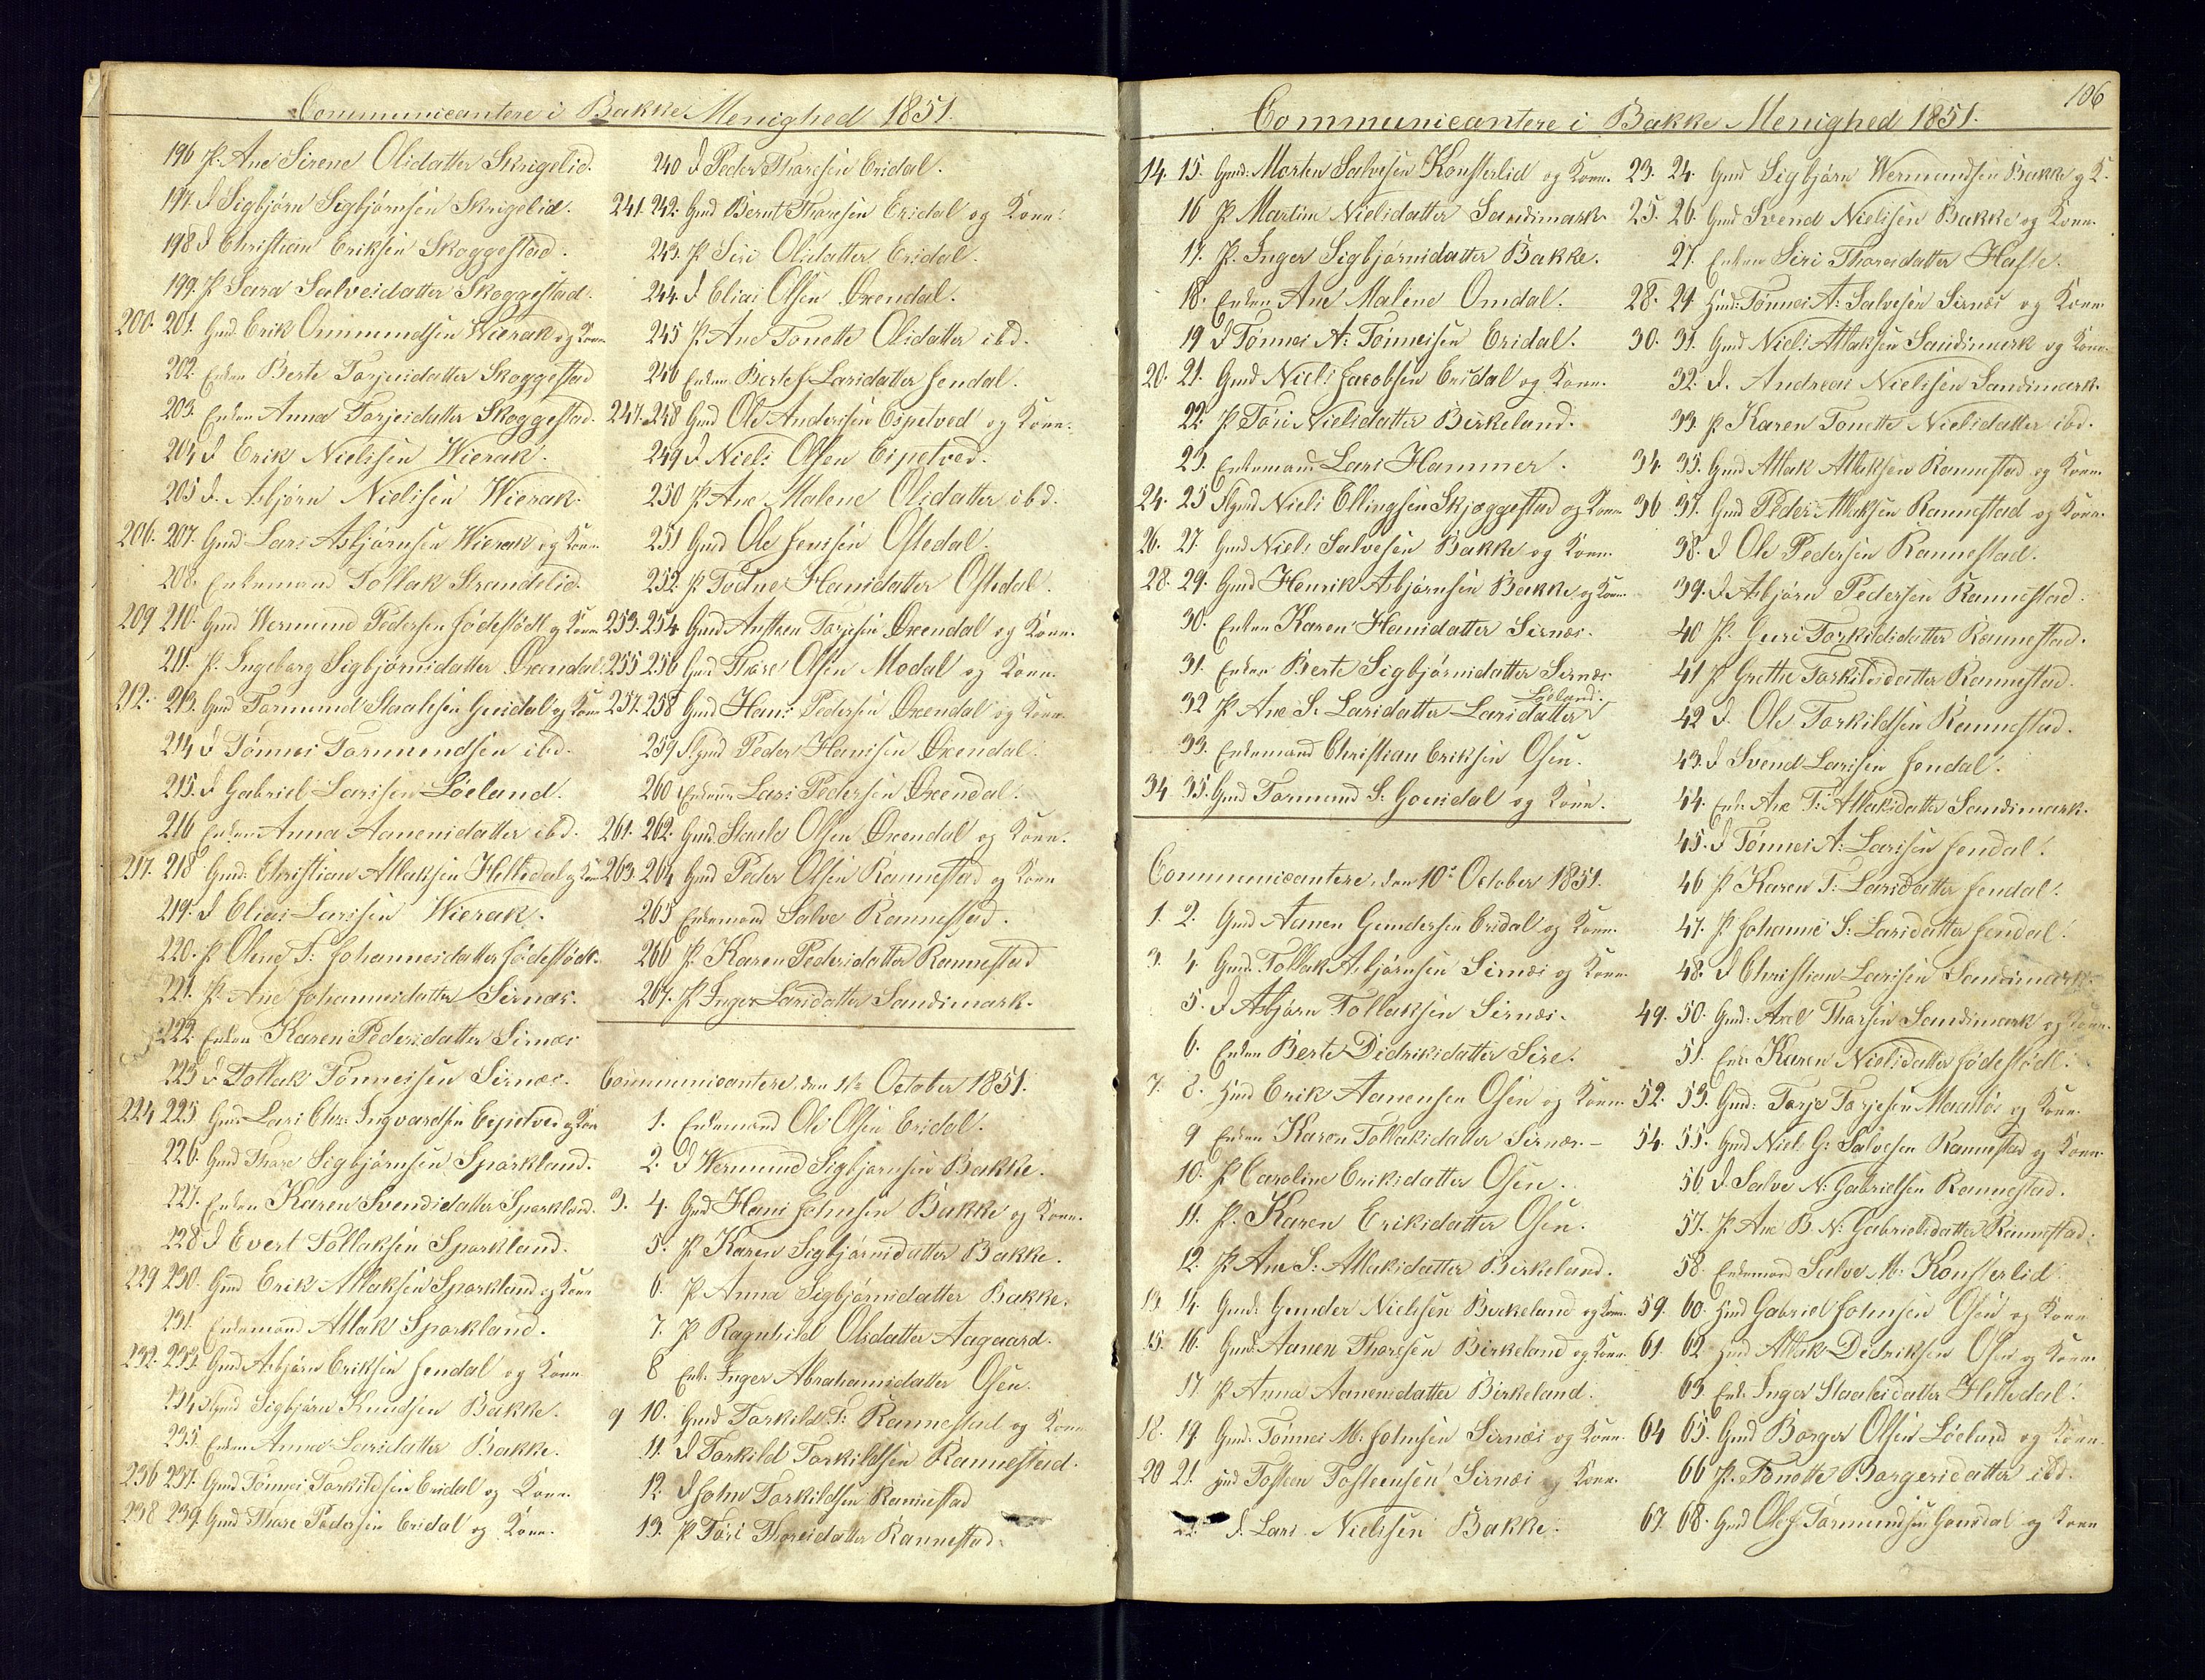 Communicantere i Bakke Menighed 1851.
196 P. Ane Sirene Olsdatter Skrigelid.
197. D Sigbjørn Sigbjørnsen Skrigelid.
198 D Christian Eriksen Skoggestad.
199. P Sara Salvesdatter Skoggestad.
200. 201. Gmd. Erik Ommundsen Wierak og Kone
202. Enken Berte Tarjesdatter Skoggestad
203. Enken Anna Tarjesdatter Skoggestad.
204 D Erik Nielssen Wierak.
205 D. Asbjørn Nielssen Wierak.
206. 207. Gmd Lars Asbjørnsen Wierak og Kone.
208. Enkemand Tollak Strandelid.
209 210. Gmd Wermund Pedersen Fødestødt og Kone
211. P. Ingeborg Sigbjørnsdatter Oxendal.
212. 213. Gmd Tarmund Staalesen og Kone
214 D Tønnes Tarmundsen ibd.
215. D Gabriel Larssen Løeland.
216 Enken Anna Aanensdatter ibd.
217. 218 Gmd. Christian Atlaksen Helledal og Kone
219. D Elias Larssen Wierak.
220. P Olene T: Johannesdatter Fødestødt.
221. P. Ane Johannesdatter Sirnæs.
222. Enken Karen Pedersdatter Sirnæs
223 D Tollak Tønnessen Sirnæs.
224 225. Gmd Lars Chr: Ingvardsen Espetved og Kone
226. Gmd Thore Sigbjørnsen Sparkland.
227. Enken Karen Svendsdatter Sparkland.
228 D Evert Tollaksen Sparkland.
229 230. Gmd Erik Atlaksen Sparkland og Kone
231. Enkemand Atlak Sparkland.
232. 233. Gmd Asbjørn Eriksen Jendal og Kone
234 Sigbjørn Knudsen Bakke.
235. Enken Anna Larsdatter Bakke.
236 237. Gmd Tønnes Torkildsen Eridal og Kone.
238 239. Gmd Thore Pedersen Eridal og Kone.
240 D Peder Thoresen Eridal.
241. 242. Gmd Bernt Thoresen Eridal og Kone.
243. P Siri Olsdatter Eridal.
244. D Elias Olsen Oxendal.
245 P Ane Tonette Olsdatter ibd.
246 Enken Larsdatter Jendal.
247. 248 Gmd Ole Anderssen Espetved og Kone.
249 D Niels Olsen Espetved.
250 P Ane Malene Olsdatter ibd.
251 Gmd Ole Jenssen Oftedal.
252. P Todne Hansdatter Oftedal.
253. 254 Gmd Tarjesen Oxendal og Kone.
255 256 Gmd Thore Olsen Modal og Kone.
257. 258 Gmd Hans Pedersen Oxendal og Kone.
259 Peder Hanssen Oxendal.
260 Lars Pedersen Oxendal.
261. 262. Gmd. Staale Olsen Oxendal og Kone.
263. 264 Gmd Peder Olsen Rannestad og Kone
265 Enkemand Salve Rannestad.
266 P. Karen Pedersdatter Rannestad
267. P Inger Larsdatter Sandsmark.
Communicantere den October 1851.
1. Enkemand Ole Olsen Eridal.
2. D Wermund Sigbjørnsen Bakke.
3. 4. Gmd Hans Johnsen Bakke og Kone.
5. P Karen Sigbjørnsdatter Bakke.
6. P Anna Sigbjørnsdatter Bakke.
7. P Ragnhild Olsdatter Aagaard.
8 Enk. Inger Abrahamsdatter Osen.
9 10. Gmd Torkild T: Rannestad og Kone
11. D Torkild Torkildsen Rannestad.
12. D John Torkildsen Rannestad
13. P Tari Thoresdatter Rannestad.
106
Communicantere i Bakke Menighed 1851.
14. 15. Gmd. Morten Salvesen Konsterlid og Kone.
16 P Martine Nielsdatter Sandsmark
17. P. Inger Sigbjørnsdatter Bakke.
18. Enken Ane Malene Omdal.
19 D Tønnes A: Tønnessen Eridal.
20. 21. Gmd Niels Jacobsen Eridal og Kone.
22. P Tari Nielsdatter Birkeland.
23. Enkemand Lars Hammer.
24. 25 Niels Ellingsen Skjoggestad og Kone
26. 27. Gmd Niels Salvesen Bakke og Kone.
28. 29. Gmd Henrik Asbjørnsen Bakke og Kone.
30. Enken Karen Hansdatter Sirnæs.
31. Enken Berte Sigbjørnsdatter Sirnæs
Løeland.
32 P Ane S. Larsdatter Larsdatter
33. Enkemand Christian Eriksen Osen.
34 35. Gmd Tarmund S: og Kone.
Communicantere, den 10de October 1851.
1. 2. Gmd Aanen Gundersen Eridal og Kone.
3. 4. Gmd. Tollak Asbjørnsen Sirnæs og Kone.
5. D Asbjørn Tollaksen Sirnæs.
6. Enken Berte Didriksdatter Sire.
7. 8. Hmd Erik Aanensen Osen og Kone.
9 Enken Karen Tollaksdatter Sirnæs. –
10. P Caroline Eriksdatter Osen.
11. P. Karen Eriksdatter Osen.
12. P Ane S: Atlaksdatter Birkeland.
13. 14. Gmd. Gunder Nielssen Birkeland og Kone.
15. 16. Gmd. Aanen Thoresen Birkeland og Kone.
17 P Anna Aanensdatter Birkeland.
18. 19. Gmd. Tønnes M. Johnsen Sirnæs og Kone.
20 21. Hmd Tosteen Tosteensen Sirnæs og Kone.
22. D. Lars Nielssen Bakke.
23. 24. Gmd Sigbjørn Wermundsen Bakke og K.
25. 26. Gmd Svend Nielssen Bakke og Kone.
27. Enken Siri Thoresdatter
28. 29. Hmd: Tønnes A: Salvesen Sirnæs og Kone
30. 31. Gmd Niels Atlaksen Sandsmark og Kone.
32. D. Andreas Nielssen Sandsmark.
33. P Karen Tonette Nielsdatter ibd.
34. 35. Gmd Atlak Atlaksen Rannestad og Kone.
36 37. Gmd Peder Atlaksen Rannestad og Kone.
38. D Ole Pedersen Rannestad.
39. D Asbjørn Pedersen Rannestad.
40 P. Guri Torkildsdatter Rannestad.
41 P Grethe Torkildsdatter Rannestad.
42 D. Ole Torkildsen Rannestad.
43. D Svend Larssen Jendal.
44. Enk. Ane T: Atlaksdatter Sandsmark.
45. D Tønnes A: Larssen Jendal.
46 P Karen T: Larsdatter Jendal.
47. P Johanne S: Larsdatter Jendal.
48. D Christian Larssen Sandsmark.
49. 50. Gmd: Axel Sandsmark og Kone.
51. Enk: Karen Nielsdatter Fødestødt.
52. 53. Gmd: Tarje Tarjesen og Kone.
54. 55. Gmd Niels G: Salvesen Rannestad og Kone.
56 D. Salve N: Gabrielsen Rannestad.
57. P Ane B. N: Gabrielsdatter Rannestad.
58. Enkemand Salve M: Konsterlid
59. 60. Hmd Gabriel Johnsen Osen og Kone
61. 62 Hmd Atlak Didriksen Osen og Kone
63. Enk. Inger Staalesdatter Helledal.
64 65. Gmd Børger Olsen Løeland og Kone.
66 P. Tonette Børgersdatter ibd.
67. 68. Gmd Ole Tarmundsen og Kone